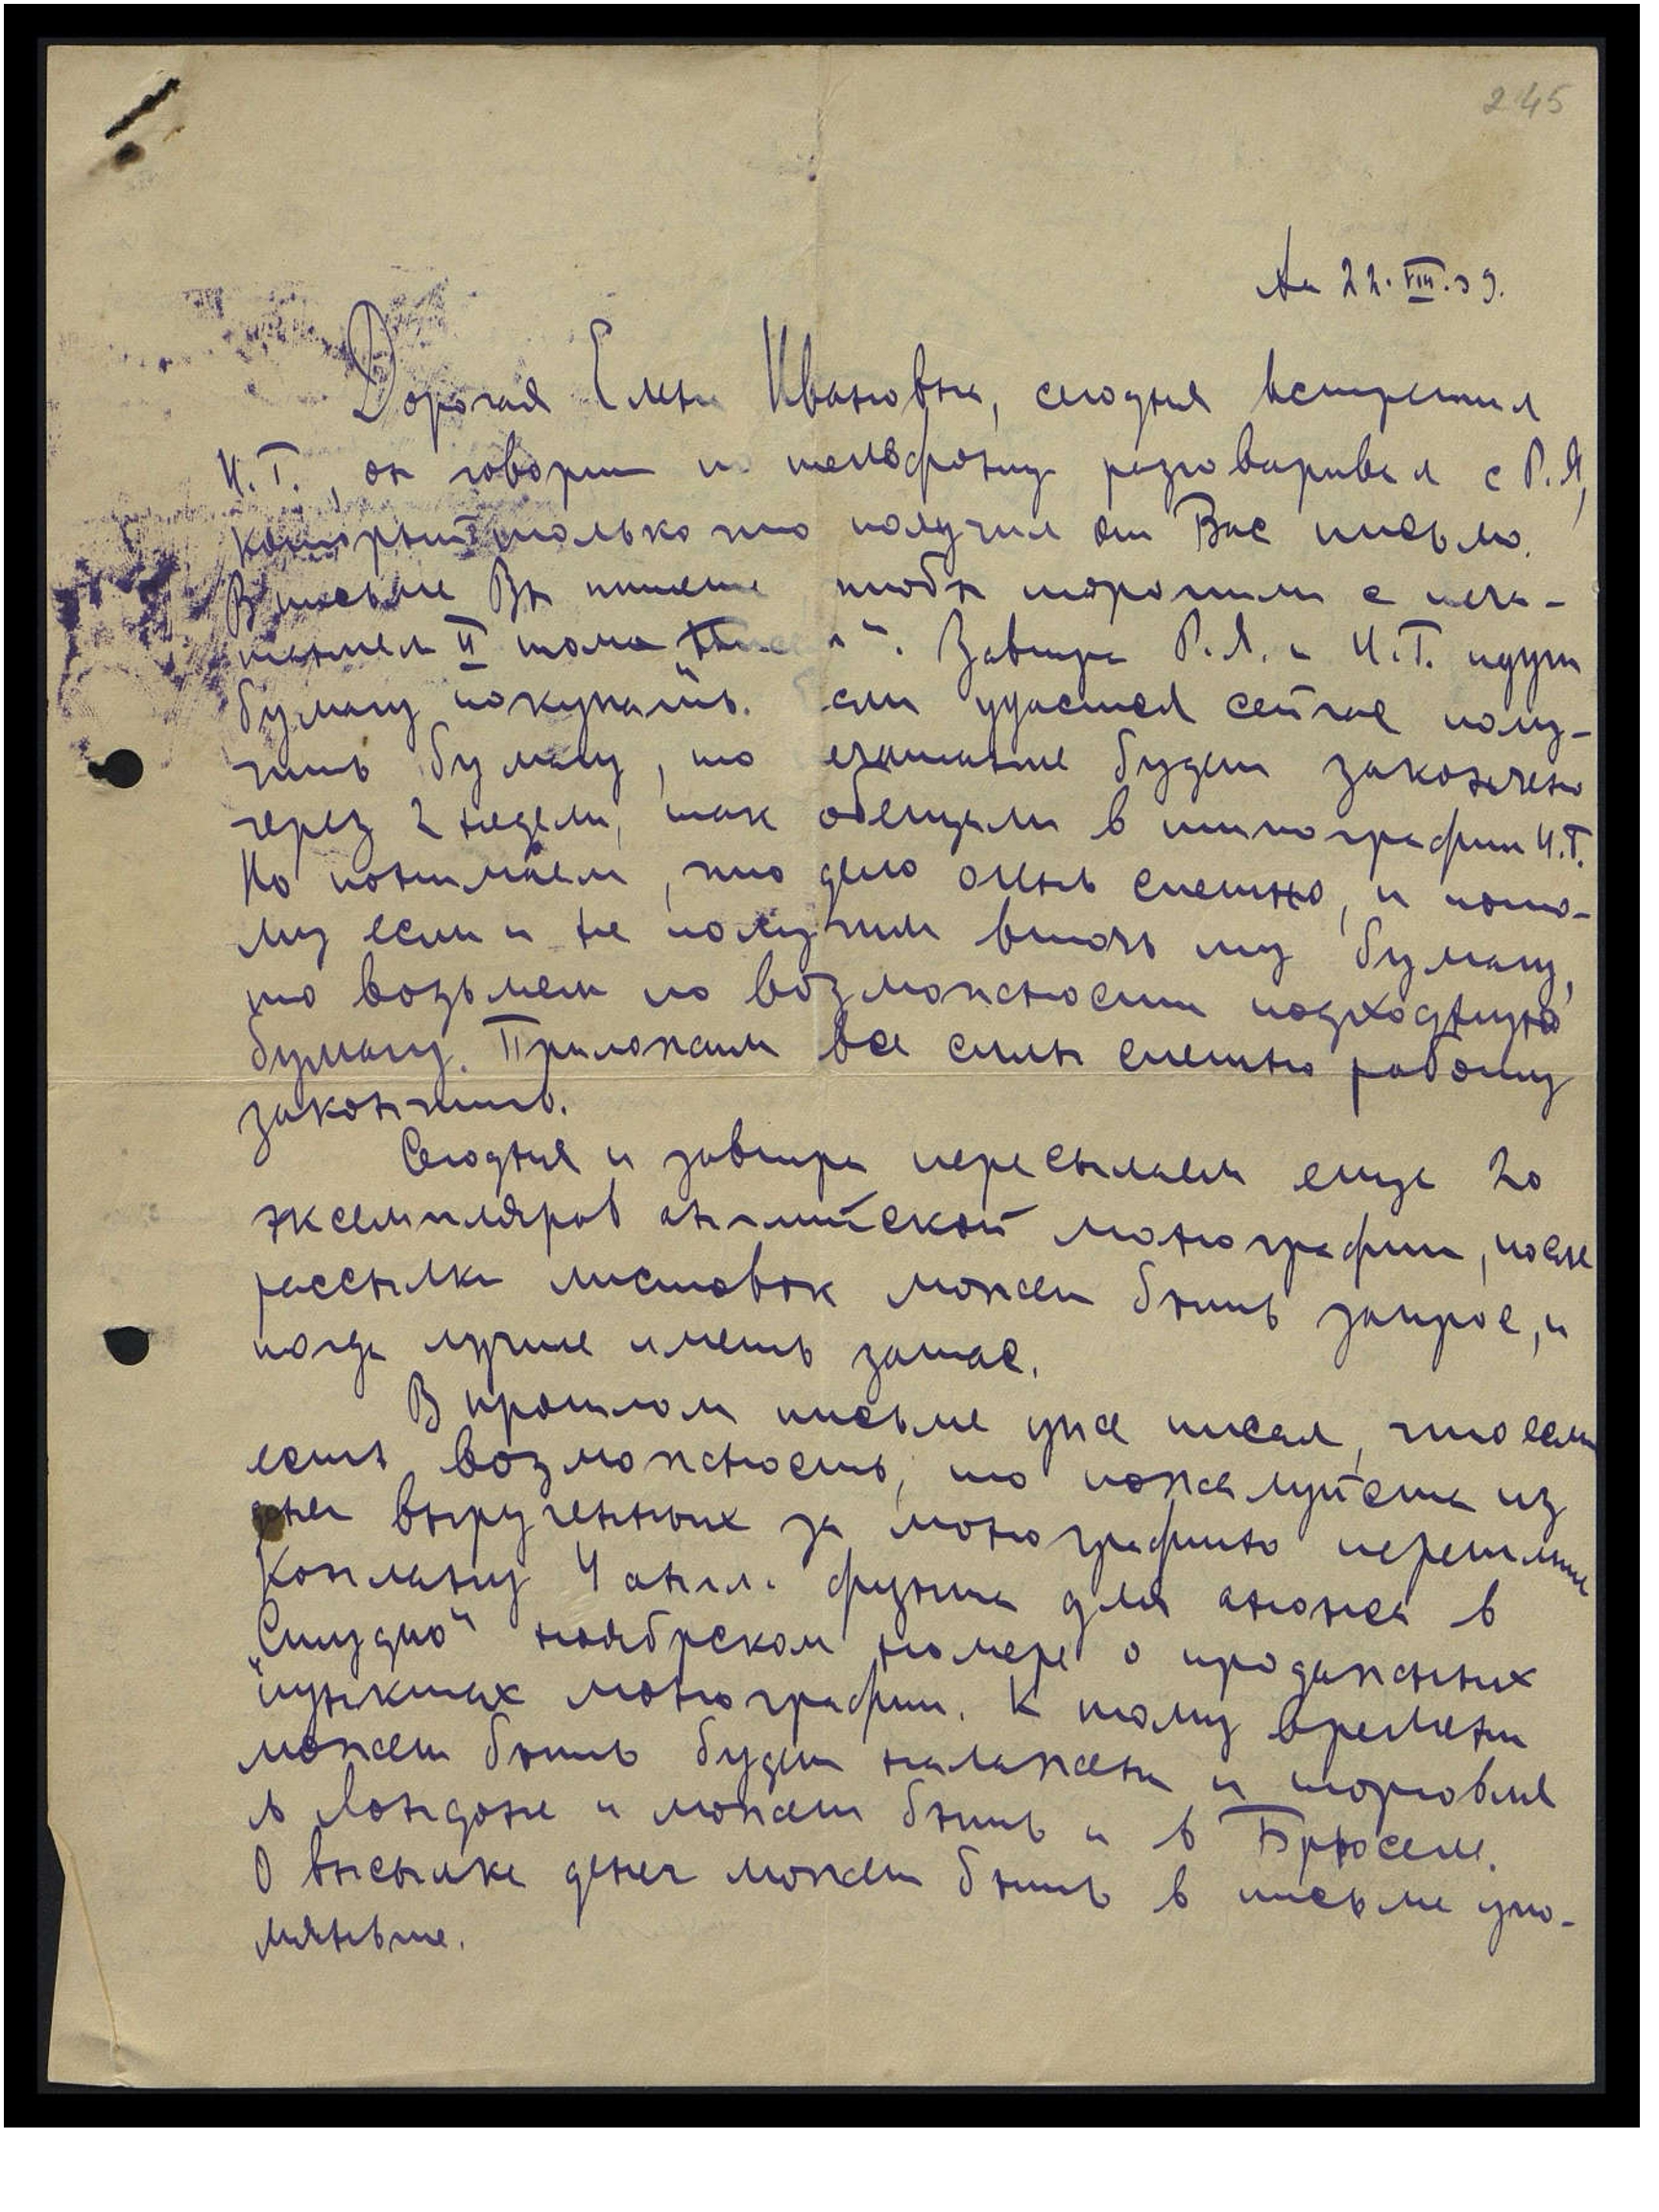 245
22. VIII. 39.
Дорогая Елена Ивановна, сегодня встретил
И. Г., он говорит по телефону разговаривал с Р. Я,
который только что получил от Вас письмо.
В письме Вы пишете чтобы торопили с печа-
танием II тома ". Завтра Р. Я. и И. Г. идут
бумагу покупать. если удастся сейчас полу-
чить бумагу, то печатание будет закончено
через 2 недели, так обещали в типографии И. Г.
Но понимаем, что дело очень спешно, и пото-
му если и не получим вточь ту бумагу,
то возьмем по возможности подходящую
бумагу. Приложим все силы спешно работу
закончить.
Сегодня и завтра пересылаем еще 20
экземпляров английской монографии, после
рассылки листовок может быть запрос, и
тогда лучше иметь запас.
В прошлом письме уже писал, что если
есть возможность, то пожалуйста из
денег вырученных за монографию перешлите
Копланду 4 англ. фунта для анонса в
„Студио" ноябрском номере о продажных
пунктах монографии. К тому времени
может быть будет налажена и торговля
в Лондоне и может быть и в Брюселе.
О высылке денег может быть в письме упо-
мяньте.